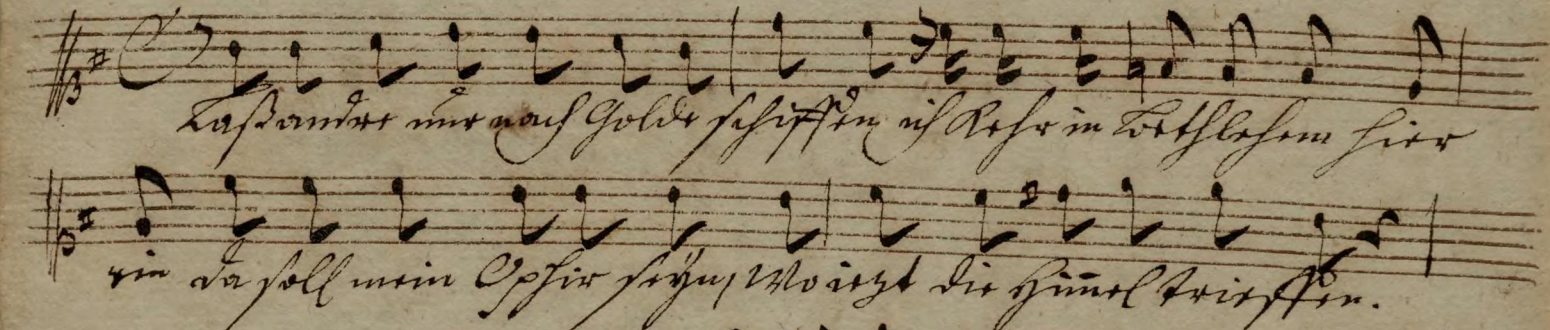 Laß andre nur nach Golde schiffen ich Kehr in Bethlehem hier
ein da soll mein Ophir seyn, Wo iezt die Him̅el trieffen.